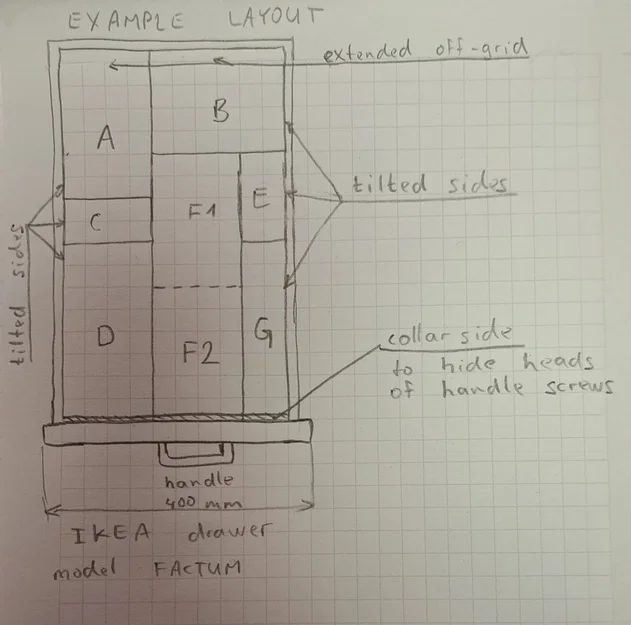 EXAMPLE LAYOUT
extended off-grid
A
B
tilted sides
C
F1
E
tilted sides
D
F2
G
collar side
to hide heads
of handle screws
handle
400 mm
IKEA drawer
model FACTUM